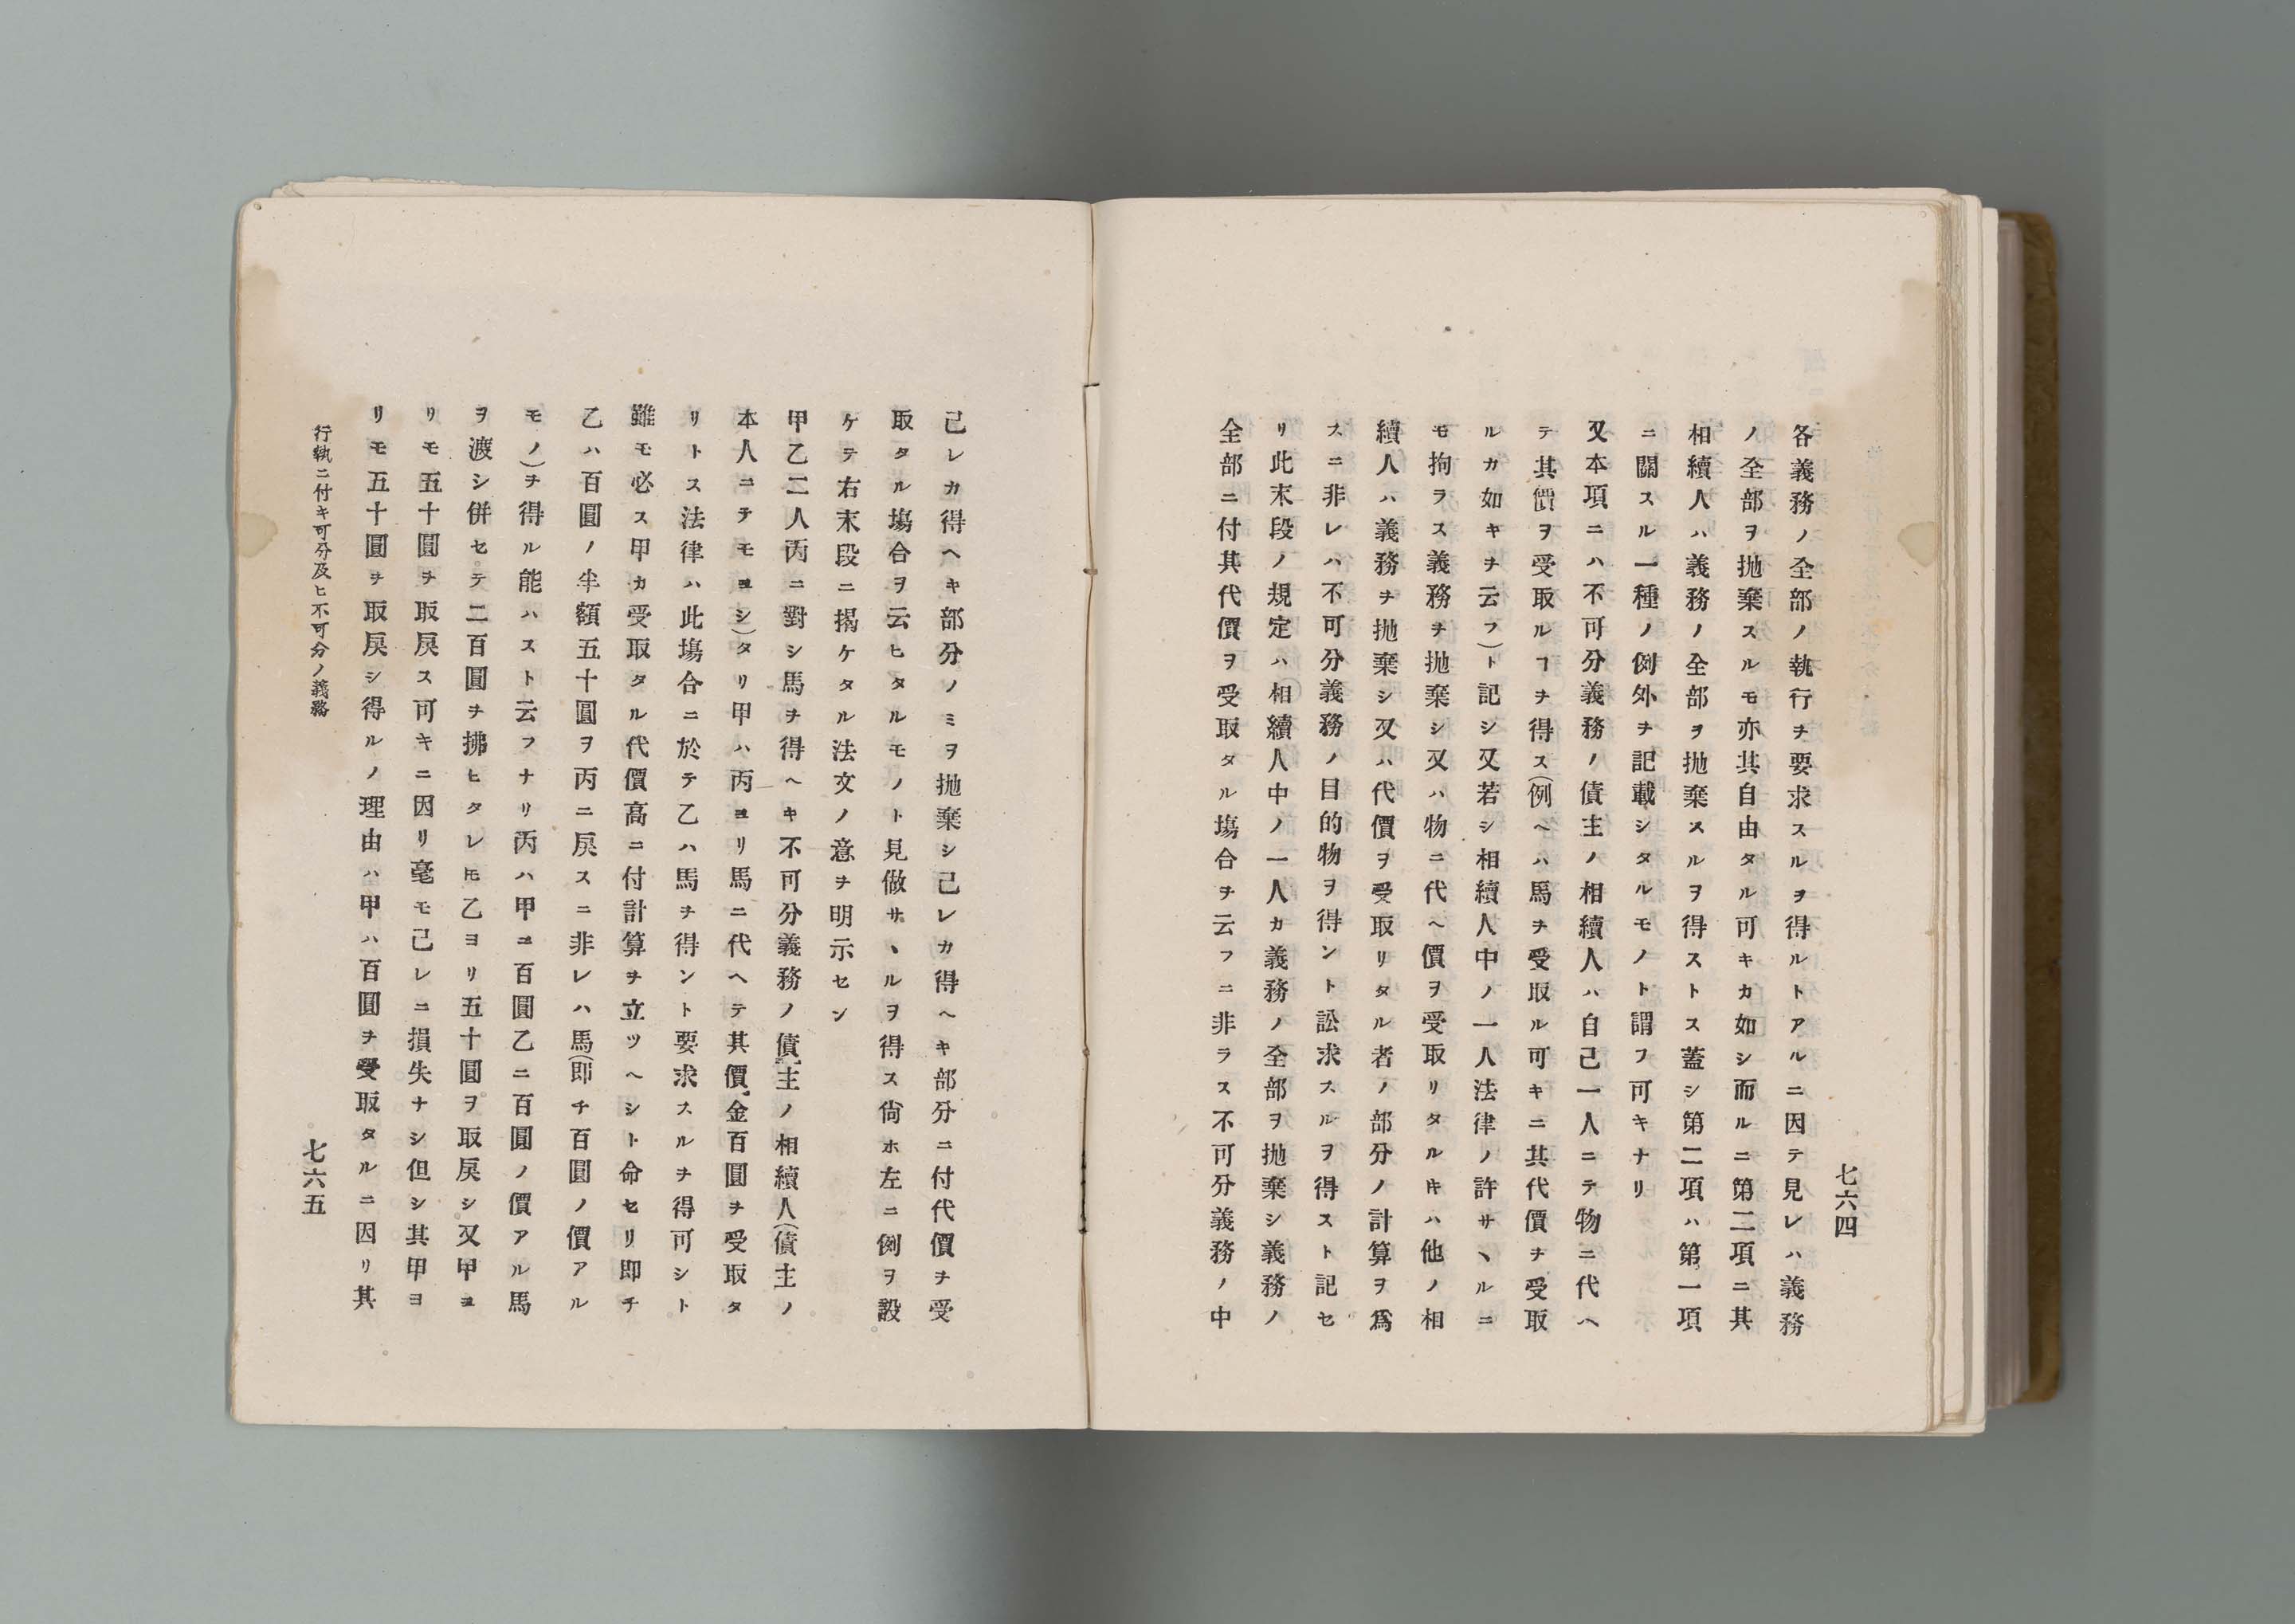 七六四
各義務ノ全部ノ執行ヲ要求スルヲ得ルトアルニ因テ見レハ義務
ノ全部ヲ抛棄スルモ亦其自由タル可キカ如シ而ルニ第二項ニ其
相續人ハ義務ノ全部ヲ抛棄スルヲ得ストス蓋シ第二項ハ第一項
ニ關スル一種ノ例外ヲ記載シタルモノト謂フ可キナリ
又本項ニハ不可分義務ノ債主ノ相續人ハ自己一人ニテ物ニ代ヘ
テ其價ヲ受取ルヿヲ得ス(例ヘハ馬ヲ受取ル可キニ其代價ヲ受取
ルカ如キヲ云フ)ト記シ又若シ相續人中ノ一人法律ノ許サヽルニ
モ拘ヲス義務ヲ抛棄シ又ハ物ニ代ヘ價ヲ受取リタルキハ他ノ相
續人ハ義務ヲ抛棄シ又ハ代價ヲ受取リタル者ノ部分ノ計算ヲ爲
スニ非レハ不可分義務ノ目的物ヲ得ント訟求スルヲ得スト記セ
リ此末段ノ規定ハ相續人中ノ一人カ義務ノ全部ヲ抛棄シ義務ノ
全部ニ付其代價ヲ受取タル塲合ヲ云フニ非ラス不可分義務ノ中
己レカ得ヘキ部分ノミヲ抛棄シ己レカ得ヘキ部分ニ付代價ヲ受
取タル塲合ヲ云ヒタルモノト見做サヽルヲ得ス尙ホ左ニ例ヲ設
ケテ右末段ニ揭ケタル法文ノ意ヲ明示セン
甲乙二人丙ニ對シ馬ヲ得ヘキ不可分義務ノ債主ノ相續人(債主ノ
本人ニテモヨシ)タリ甲ハ丙ヨリ馬ニ代ヘテ其價金百圓ヲ受取タ
リトス法律ハ此塲合ニ於テ乙ハ馬ヲ得ント要求スルヲ得可シト
雖モ必ス甲カ受取タル代價高ニ付計算ヲ立ツヘシト命セリ即チ
乙ハ百圓ノ半額五十圓ヲ丙ニ戾スニ非レハ馬(即チ百圓ノ價アル
モノ)ヲ得ル能ハスト云フナリ丙ハ甲ニ百圓乙ニ百圓ノ價アル馬
ヲ渡シ併セテ二百圓ヲ拂ヒタレ𪜈乙ヨリ五十圓ヲ取戾シ又甲ヨ
リモ五十圓ヲ取戾ス可キニ因リ毫モ己レニ損失ナシ但シ其甲ヨ
リモ五十圓ヲ取戾シ得ルノ理由ハ甲ハ百圓ヲ受取タルニ因リ其
行執ニ付キ可分及ヒ不可分ノ義務
七六五